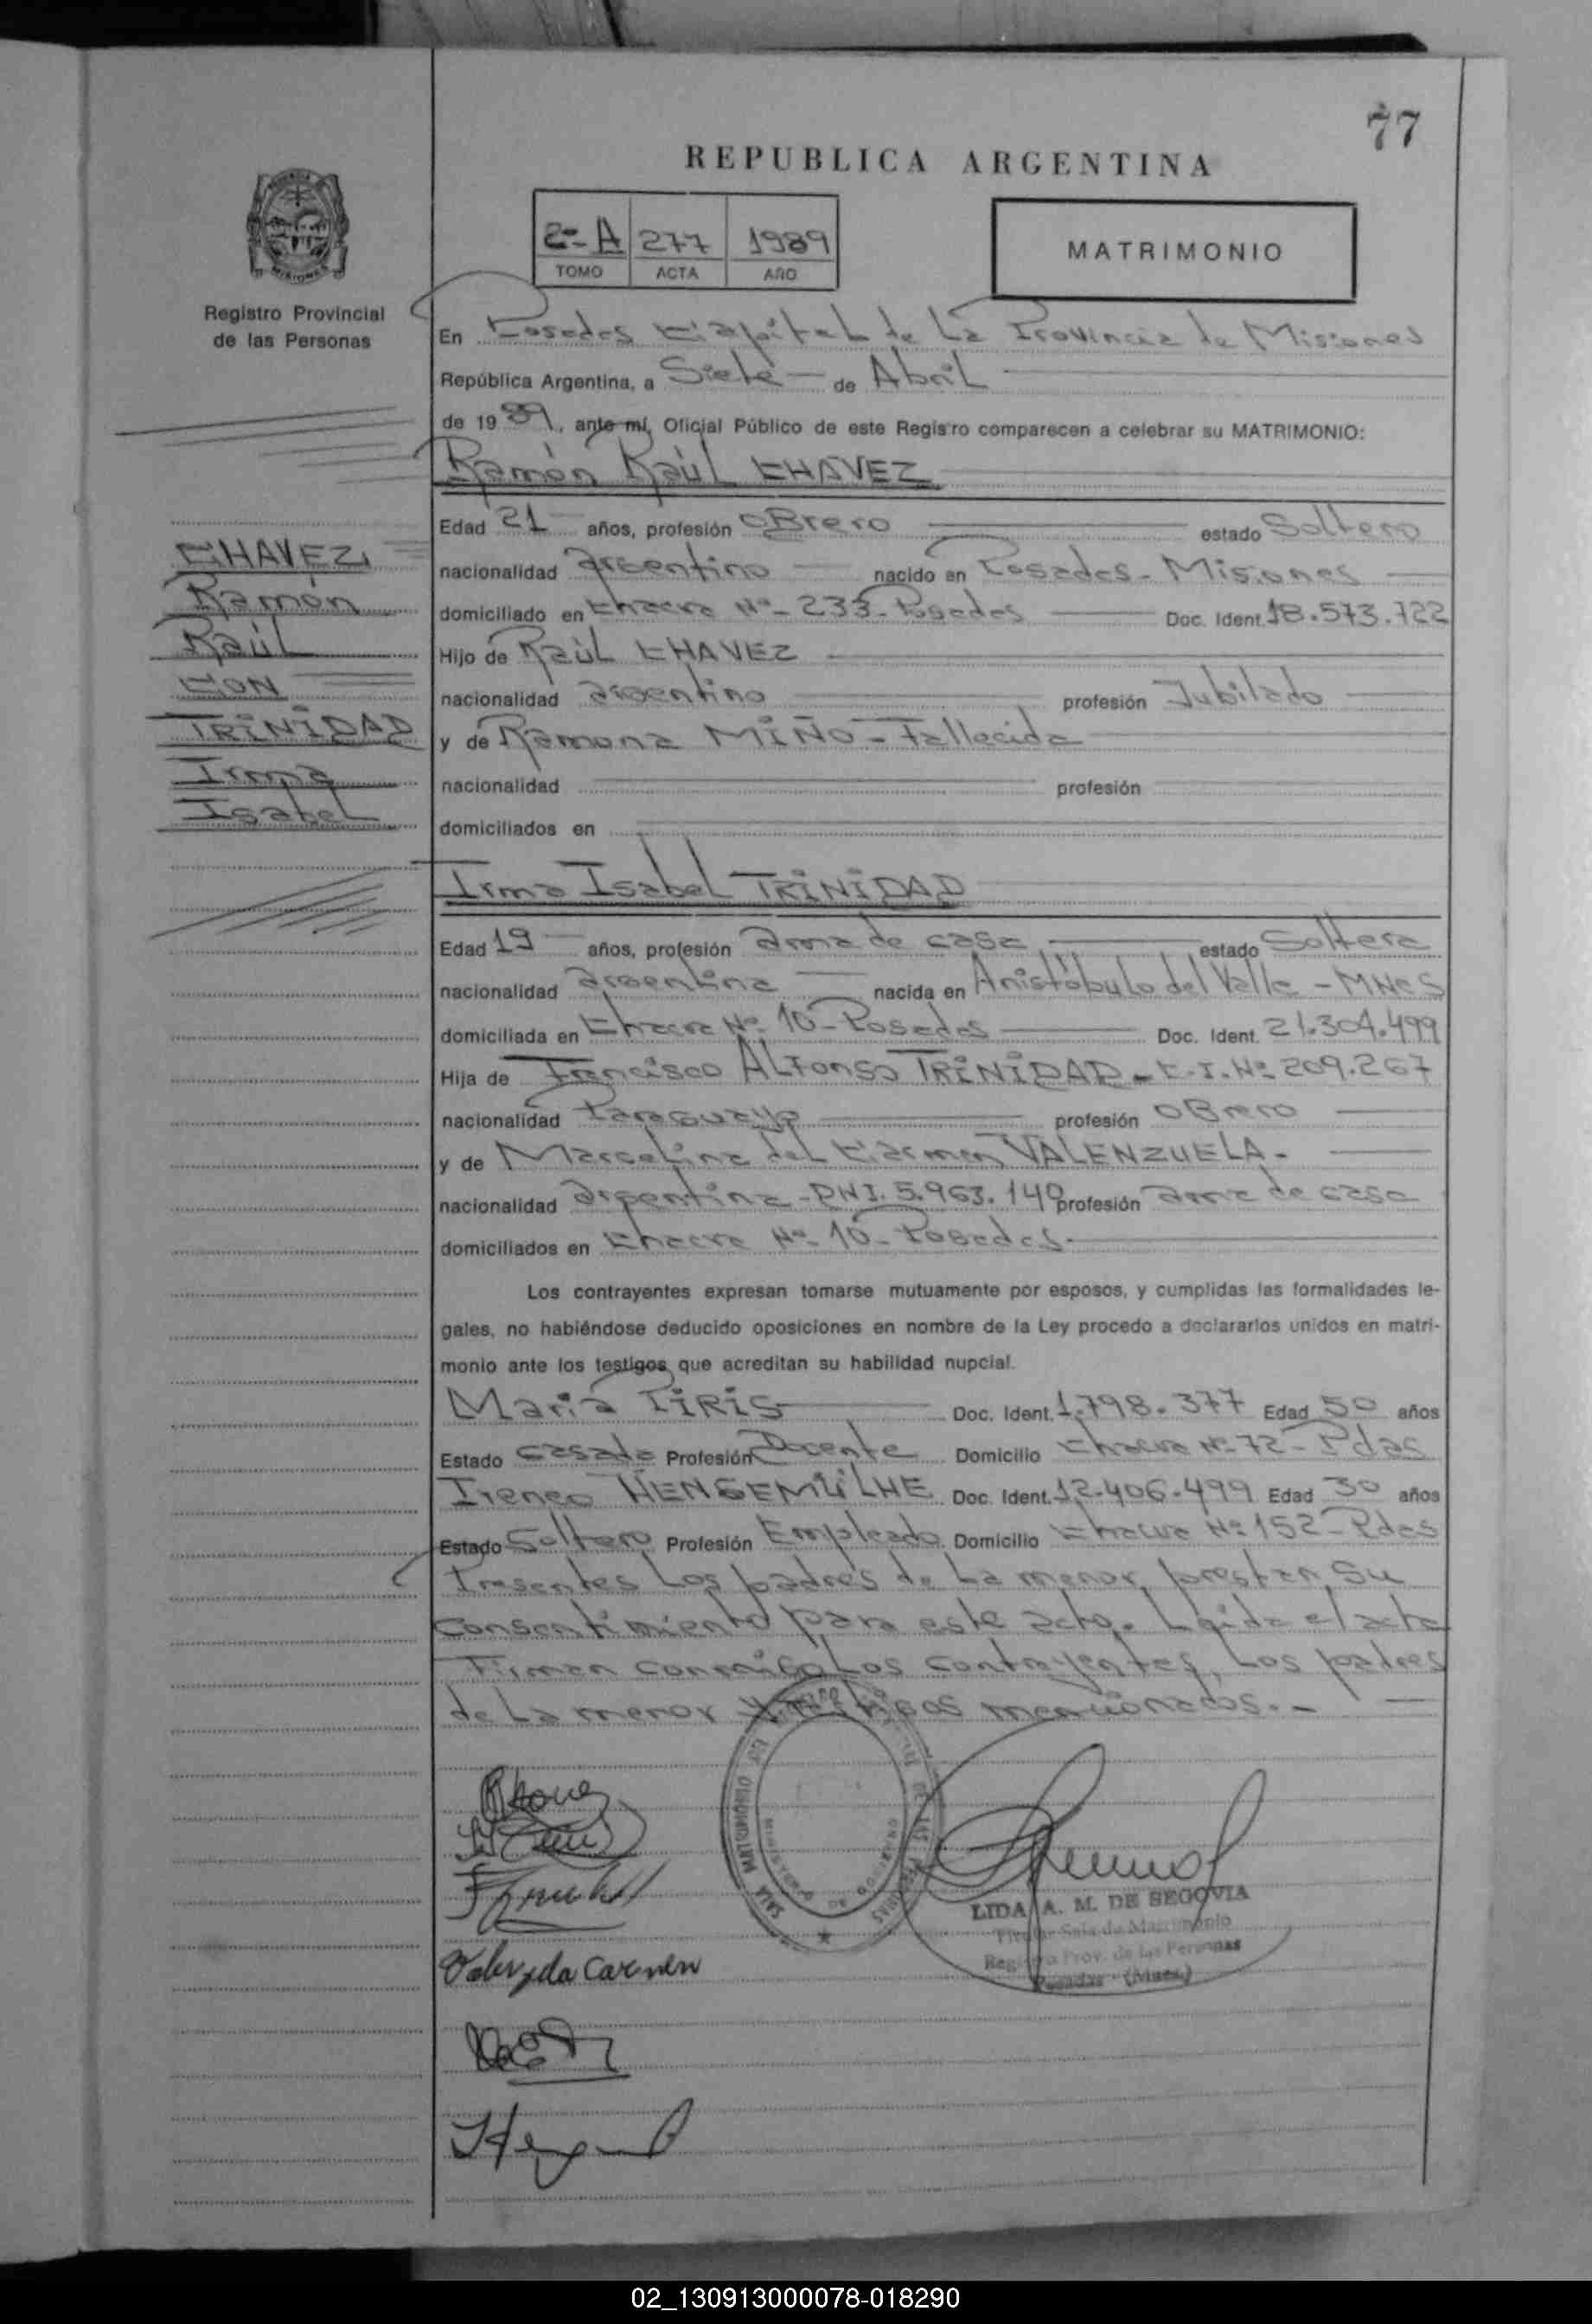 77
REPUBLICA ARGENTINA
2º-A 277 1989
TOMO ACTA AÑO
MATRIMONIO
MISIONES
Registro Provincial
de las Personas
En Posadas Capital de La Provincia de Misiones
República Argentina, a Siete de Abril
de 1989, ante mí, Oficial Público de este Registro comparecen a celebrar su MATRIMONIO:
Ramón Raúl CHAVEZ
Edad 21 años, profesión OBrero estado Soltero
nacionalidad argentino nacido en Posadas - Misiones
domiciliado en Chacra Nº- 233- Posadas Doc. Ident. 18.573.722
Hijo de Raúl CHAVEZ
nacionalidad argentino profesión Jubilado
y de Ramona MIÑO - Fallecida
nacionalidad profesión
domiciliados en
CHAVEZ
Ramón
Raúl
CON
TRINIDAD
Irma
Isabel
Irma Isabel TRINIDAD
Edad 19 años, profesión ama de casa estado Soltera
nacionalidad argentina nacida en Aristóbulo del Valle - MNeS
domiciliada en Chacra Nº- 10- Posadas Doc. Ident. 21.304.499
Hija de Francisco ALFonso TRINIDAD - C.I. Nº 209.267
nacionalidad Paraguayo profesión OBrero
y de Marcelina del Carmen VALENZUELA -
nacionalidad argentina - DNI. 5.963.140 profesión ama de casa
domiciliados en Chacra Nº- 10- Posadas-
Los contrayentes expresan tomarse mutuamente por esposos, y cumplidas las formalidades le-
gales, no habiéndose deducido oposiciones en nombre de la Ley procedo a declararlos unidos en matri-
monio ante los testigos que acreditan su habilidad nupcial.
Maria PIRIS Doc. Ident. 1.798.377 Edad 50 años
Estado Casada Profesión Docente Domicilio Chacra Nº 72 - Pdas
Ireneo HENGEMÜLHE Doc. Ident. 12.406.499 Edad 30 años
Estado Soltero Profesión Empleado Domicilio Chacra Nº 152 - Pdas
Presentes Los padres de La menor prestan Su
Consentimiento para este acto. Leida el acta
Firman conmigo Los contrayentes, Los padres
de La menor y testigos mencionados.-
SALA MATRIMONIO
LIDA A. M. DE SEGOVIA
Titular Sala de Matrimonio
Registro Prov. de las Personas
Posadas (Mnes.)
Carmen
02_130913000078-018290